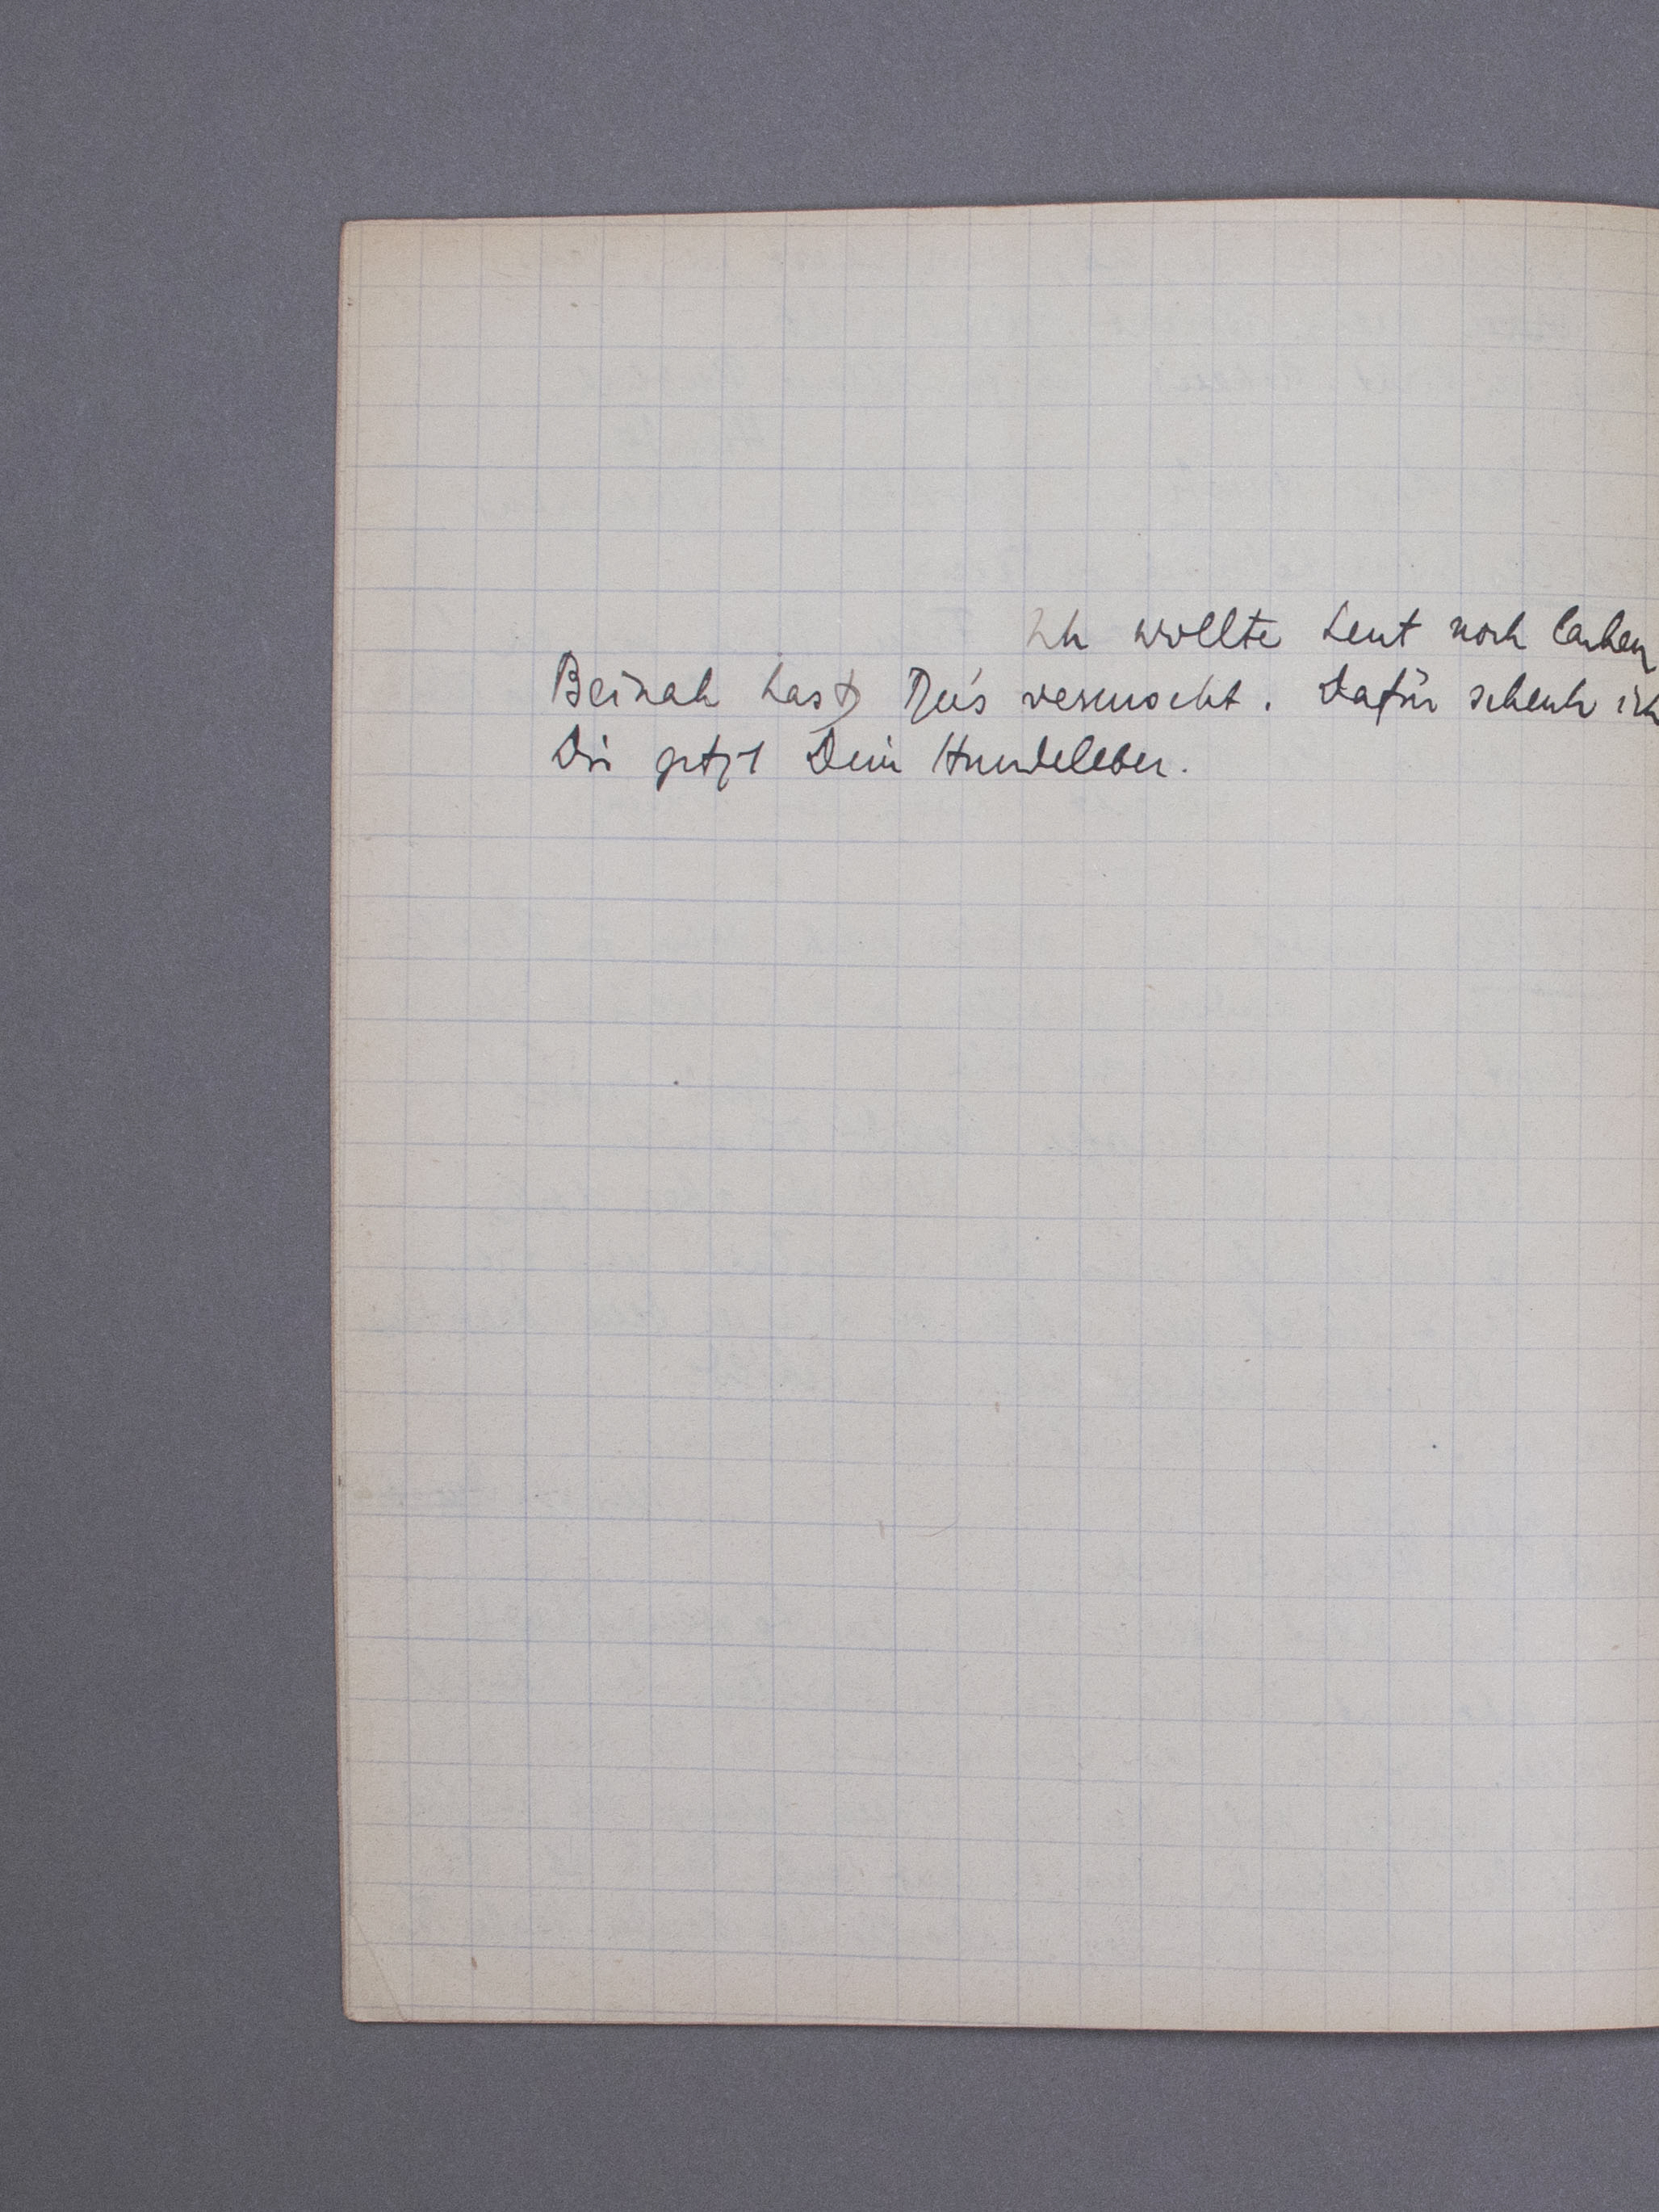 Ich wollte heut noch lachen
Beinah hast Du's vermocht. Dafür schenk ich
Dir jetzt Dein Hundeleben.